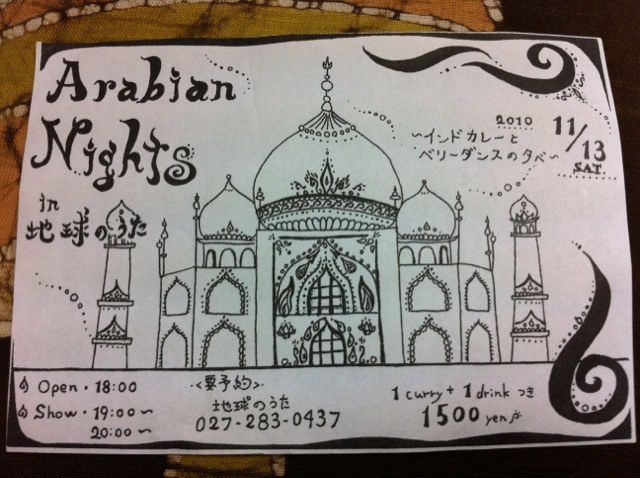 Arabian
Nights
in
地球のうた
2010
11/13
SAT
~インドカレーと
ベリーダンスの夕べ~
Open・18:00
Show・19:00~
20:00~
<要予約>
地球のうた
027-283-0437
1 curry + 1 drink つき
1500 yen